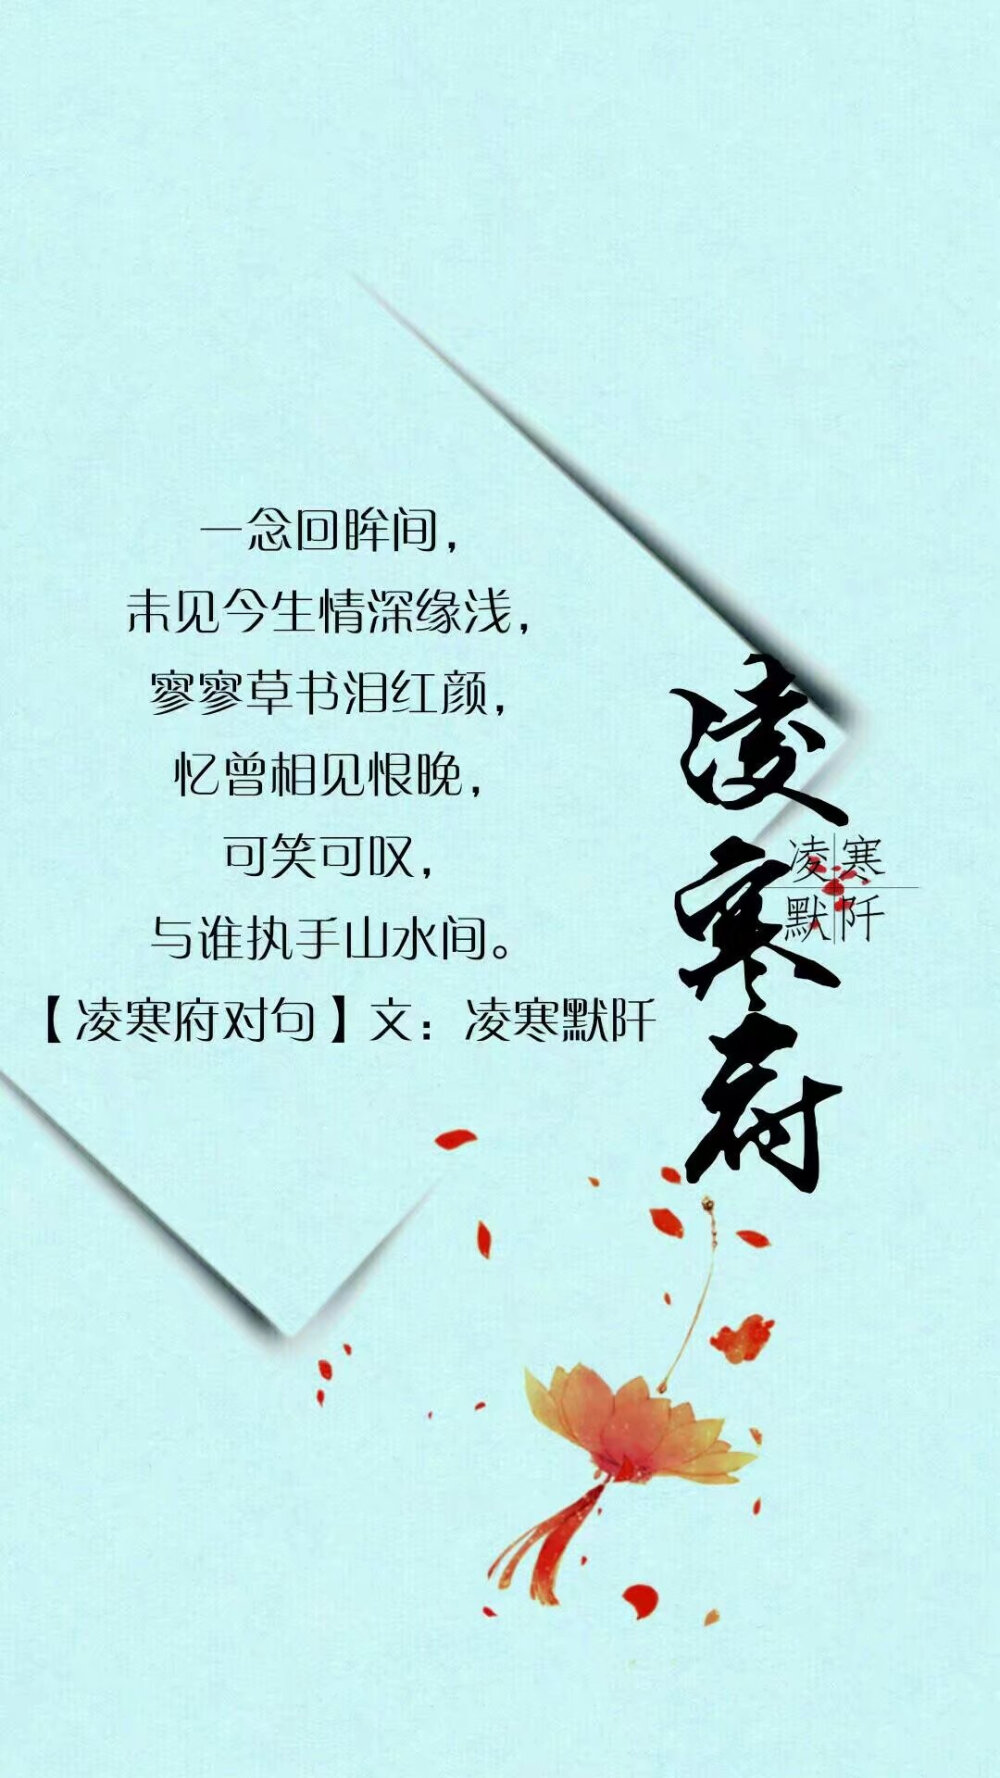 一念回眸间，
未见今生情深缘浅，
寥寥草书泪红颜，
忆曾相见恨晚，
可笑可叹，
与谁执手山水间。
【凌寒府对句】文：凌寒默阡
凌寒府
凌寒
默阡